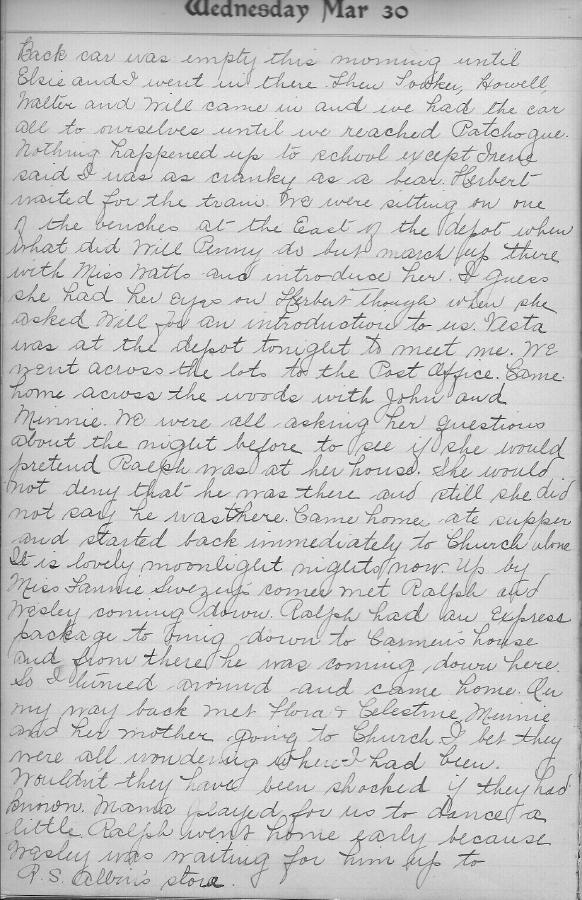 Wednesday Mar 30
Back car was empty this morning until
Elsie and I went in there. Then Howell,
Walter and Will came in and we had the car
all to ourselves until we reached Patchogue.
Nothing happened up to school except Irene
said I was as cranky as a bear. Herbert
waited for the train. We were sitting on one
of the benches at the East of the depot when
what did Will Penny do but march up there
with Miss Watts and introduce her. I guess
she had her eyes on Herbert though when she
asked Will for an introduction to us. Vesta
was at the depot tonight to meet me. We
went across the lots to the Post Office. Came
home across the woods with John and
Minnie. We were all asking her questions
about the night before to see if she would
pretend Ralph was at her house. She would
not deny that he was there and still she did
not say he was there. Came home ate supper
and started back immediately to Church alone
It is lovely moonlight nights now. Up by
Miss Fannie Swezey's corner met Ralph and
Wesley coming down. Ralph had an express
package to bring down to Carmen's house
and from there he was coming down here.
So I turned around and came home. On
my way back met Flora & Celestine, Minnie
and her mother going to Church I bet they
were all wondering where I had been.
Wouldn't they have been shocked if they had
known. Mama played for us to dance a
little. Ralph went home early because
Wesley was waiting for him up to
R. S. Albin's store.